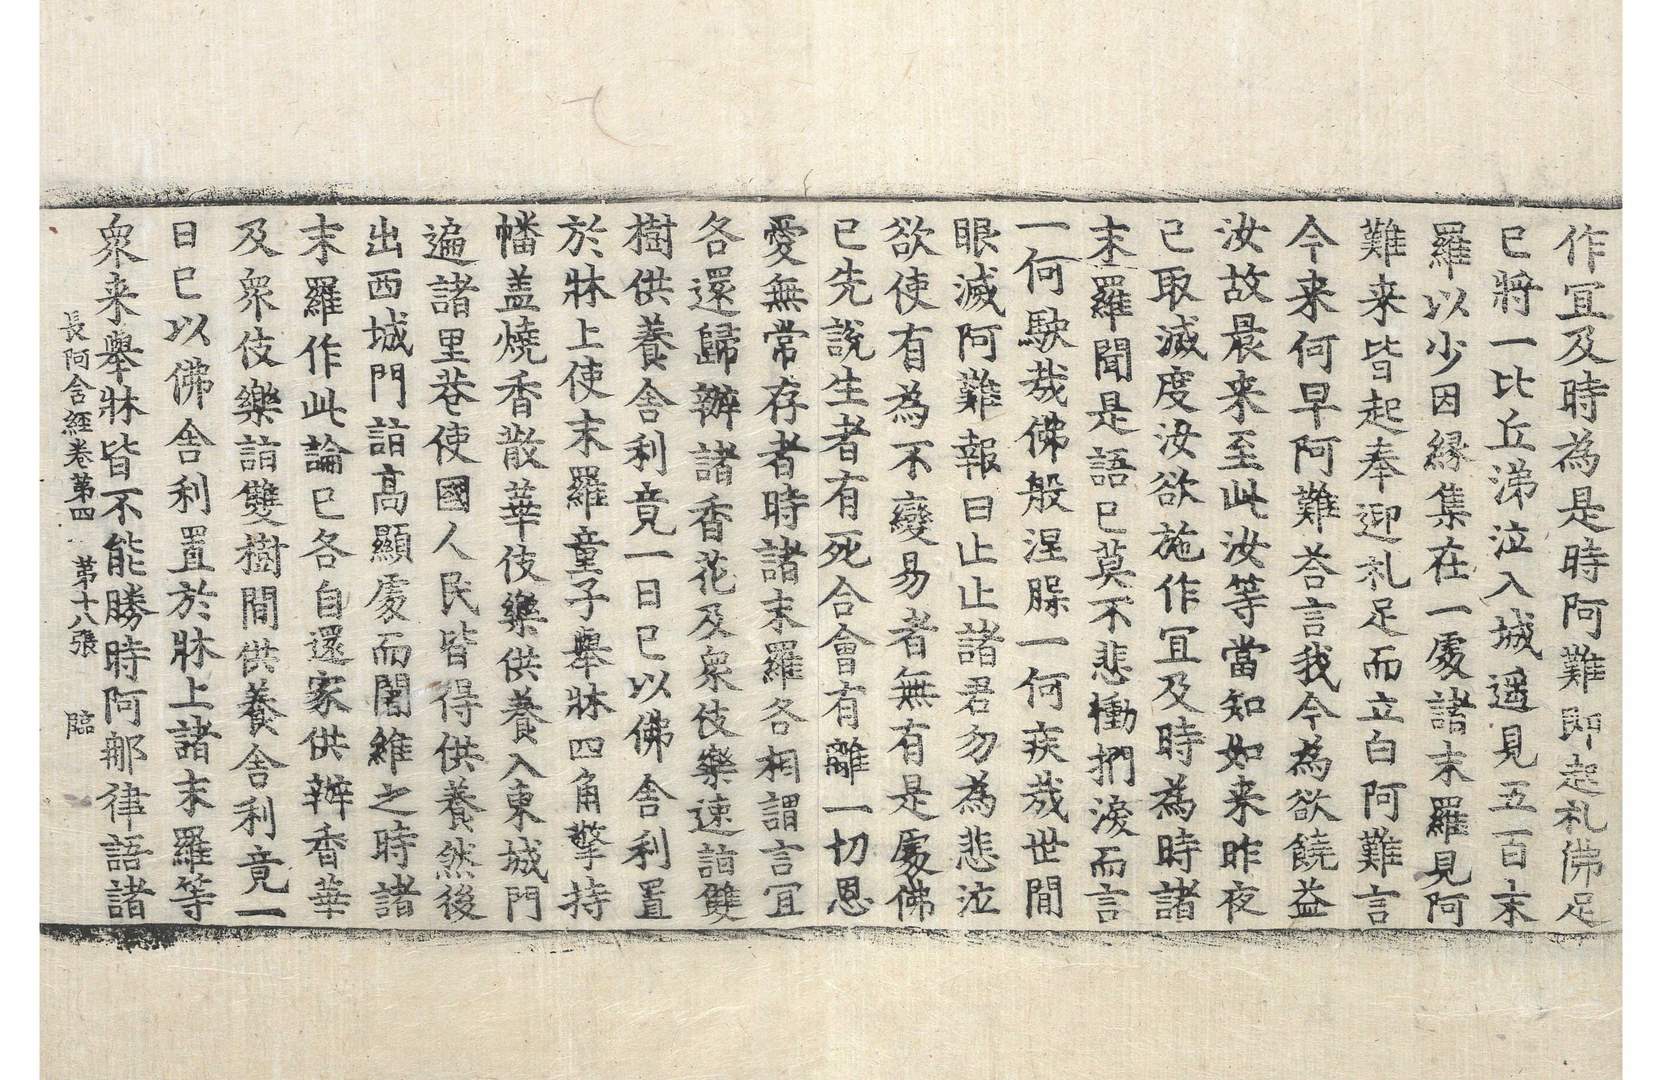 作冝及時為是時阿難即起礼佛足
已將一比丘涕泣入城遥見五百末
羅以少因縁集在一處諸末羅見阿
難来皆起奉迎礼足而立白阿難言
今来何早阿難荅言我今為欲饒益
汝故晨来至此汝等當知如来昨夜
已取滅度汝欲施作冝及時為時諸
末羅聞是語已莫不悲慟捫淚而言
一何駛㦲佛般涅槃一何疾㦲世閒
眼滅阿難報曰止止諸君勿為悲泣
欲使有為不變易者無有是處佛
已先說生者有死合會有離一切恩
愛無常存者時諸末羅各相謂言冝
各還歸辦諸香花及衆伎樂速詣雙
樹供養舎利竟一日已以佛舎利置
於牀上使末羅童子舉牀四角擎持
幡盖燒香散華伎樂供養入東城門
遍諸里巷使國人民皆得供養然後
出西城門詣髙顯處而闍維之時諸
末羅作此論已各自還家供辦香華
及衆伎樂詣雙樹閒供養舎利竟一
日已以佛舎利置於牀上諸末羅等
衆来舉牀皆不能勝時阿那律語諸
長阿含經卷第四　第十八張　臨